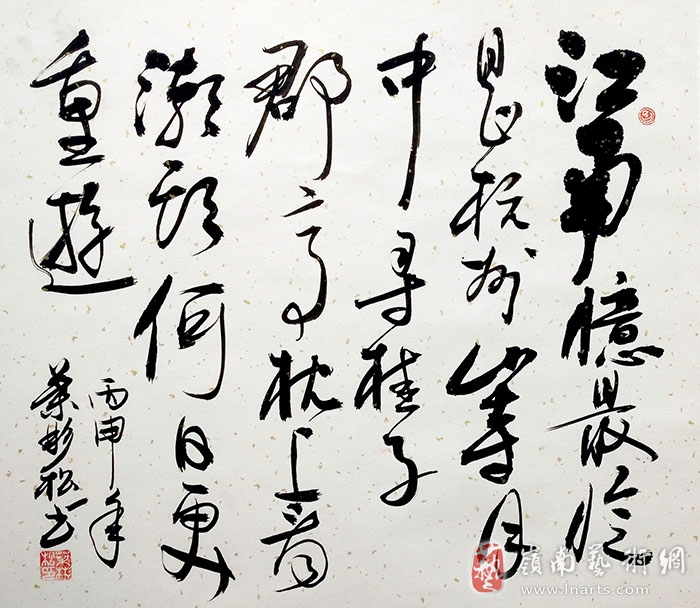 江南臆最憶
是杭州山寺月
中尋桂子
郡亭枕上看
潮頭何日更
重遊
丙申年
葉彬松书
嶺南藝術網
www.lnarts.com